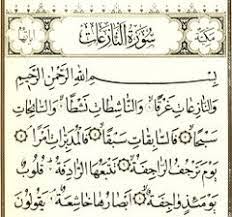 مكية سورة النازعات
بِسْمِ اللهِ الرَّحْمٰنِ الرَّحِيمِ
وَالنَّازِعَاتِ غَرْقًا ۞ وَالنَّاشِطَاتِ نَشْطًا ۞ وَالسَّابِحَاتِ
سَبْحًا ۞ فَالسَّابِقَاتِ سَبْقًا ۞ فَالْمُدَبِّرَاتِ اَمْرًا ۞
يَوْمَ تَرْجُفُ الرَّاجِفَةُ ۞ تَتْبَعُهَا الرَّادِفَةُ ۞ قُلُوبٌ
يَوْمَئِذٍ وَاجِفَةٌ ۞ اَبْصَارُهَا خَاشِعَةٌ ۞ يَقُولُونَ